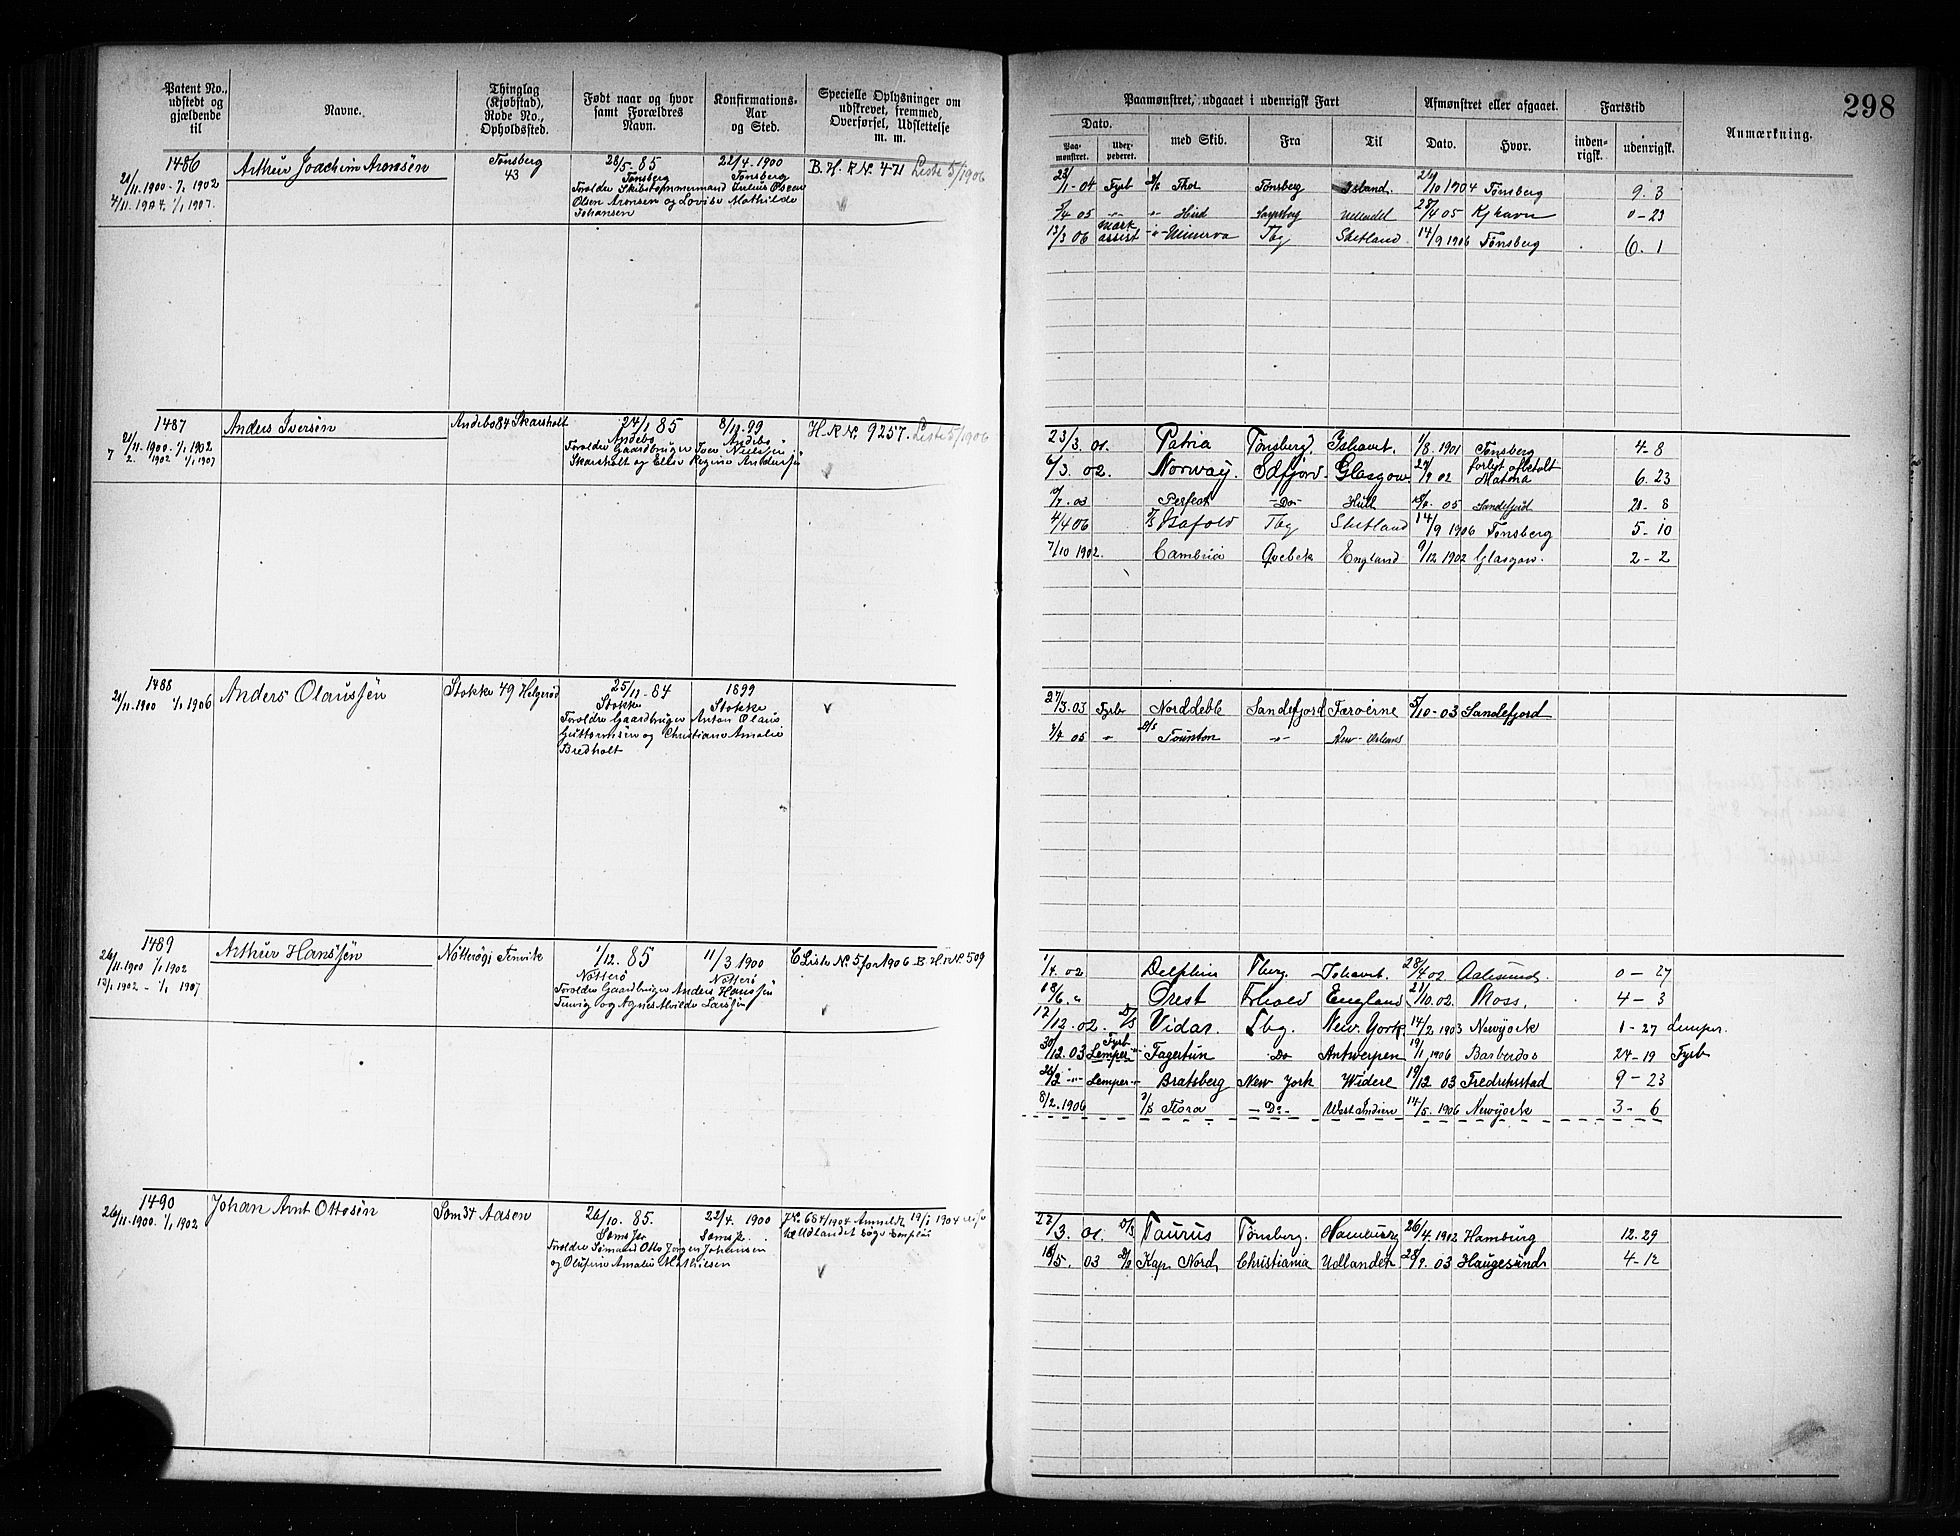 298
Patent No., udstedt og gjældende til
Navne.
Thinglag (Kjøbstad), Rode No., Opholdssted.
Født naar og hvor samt Forældres Navn.
Konfirmations- Aar og Sted.
Specielle Oplysninger om udskrevet, fremmed, Overførsel, Udslettelse m. m.
Paamønstret, udgaaet i udenrigsk Fart
Dato.
Paa- mønstret.
Uder- pederet.
med Skib.
Fra
Til
Afmønstret eller afgaaet.
Dato.
Hvor.
Fartstid
inden- rigsk.
udenrigsk.
Anmærkning.
1486
21/11.1900-1/1 1902
4/11.1904. 1/1 1907.
Arthur Joachim Aronsen
Tønsberg
43
28/5-85
Tønsberg
22/4.1900
Tønsberg
Forældre Skibstømmermand Julius Oscar
Olsen Aronsen og Lovise Mathilde
Johansen
B. H. R No. 471 Liste 5/1906
23/1-04 Fyrb D/S Thor Tønsberg Island. 21/10 1904 Tønsberg 9. 3
3/4 05 -"- -"- Hird Sarpsborg 28/4 05 Kjhavn 0-23
13/3 06 Mask assist -"- Minerva Tbg Shetland 14/9 1906 Tønsberg 6. 1
1487
21/11.1900-1/1 1902
2. 1902 1/1 1907
Anders Iversen
Andebo 84 Skarsholt
24/1 85
Andebo
8/10.99
Andebo
Forældre Gaardbruger Iver Nielsen
Skarsholt og Ellev Regine Andersen
H.R No. 9257. Liste 5/1906
23/3. 01. Patria Tønsberg. Ishavet. 1/8.1901 Tønsberg 4-8
6/3. 02. Norway. Sdfjord. Glasgow 02 forlygt afbetalt 6. 23
7. 03 Perfect -Do- Hull 05 Sandefjord 21-8
4/4 06 D/S Isafold Tbg Shetland 14/9 1906 Tønsberg 5-10
7/10 1902. Cambria Qvebek England 9/12 1902 Glasgow. 2-2
1488
21/11.1900 1/1 1906
Anders Olaussen
Stokke 49 Helgerød
25/11-84
Stokke
1899
Stokke
Forældre Gaardbruger Anton Olaus
Guttormsen og Christiane Amalie
Bredholt
27/3.03 Fyrb Norddeble Sandefjord Færøerne 5/10-03 Sandefjord
3/4 05 -"- D/S Taunton -"- New-Orleans
1489
26/11.1900 1/1 1902
13/1 1902 - 1/1 1907
Arthur Hanssen
Nøtterø Tenvik
1/12. 85
Nøtterø
11/3 1900
Nøtterø
Forældre Gaardbruger Anders Hanssen
Tenvig og Agnes Alvilde Larssen
E Liste No. 5 for 1906 B H. R No. 509
1/4. 02 Delphin Tberg. Ishavet. 28/4 02. Aalesund. 0-27
18/6. " Orest Frhald England 21/10.02. Moss. 4-3
17/12.02. D/S Vidar. Tbg. New York. 14/2 1903 Newyork 1-27 Lemper.
30/12.03 Fyrb Lemper Fagertun Do Antwerpen 19/1 1906 Barbados 24-19 Fyrb
26/2 -"- Lemper -"- Bratsberg New York Widere 19/12 03 Fredrikstad 9-23
8/2.1906 D/S Flora -Do- West Indien 14/5.1906 Newyork 3-6
1490
26/11.1900. 1/1 1902
Johan Arnt Ottosen
Sem 34 Aasen
26/10. 85.
Sems Js
22/4. 1900
Sems Js.
Forældre Sømand Otto Jørgen Johansen
og Olufine Amalie Mathisen
JNo. 684/1904 Anmeldt 19/1 1904 reise
til Udlandet søge Emploi
27/3. 01. D/S Taurus Tønsberg. Hamburg 26/4.1902 Hamburg 12.29
18/5. 03 D/S Kap Nord Christiania Udlandet 28/9. 03 Haugesund 4-12